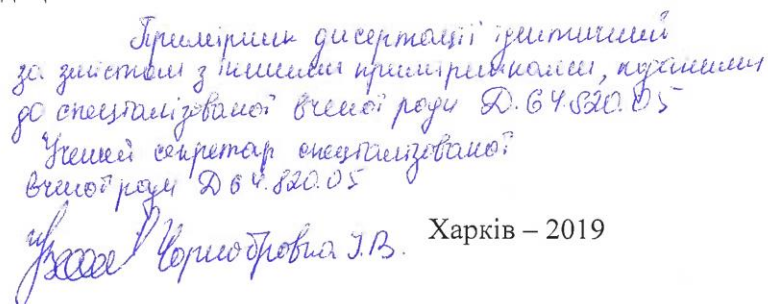 Примірник дисертації ідентичний
за змістом з іншими примірниками, поданими
до спеціалізованої вченої ради Д.64.820.05
Учений секретар спеціалізованої
вченої ради Д 64.820.05
Чорнобровка І.В.
Харків – 2019